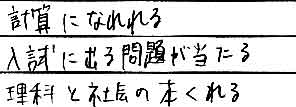 計算になれれる
入試に出る問題が当たる
理科と社会の本くれる